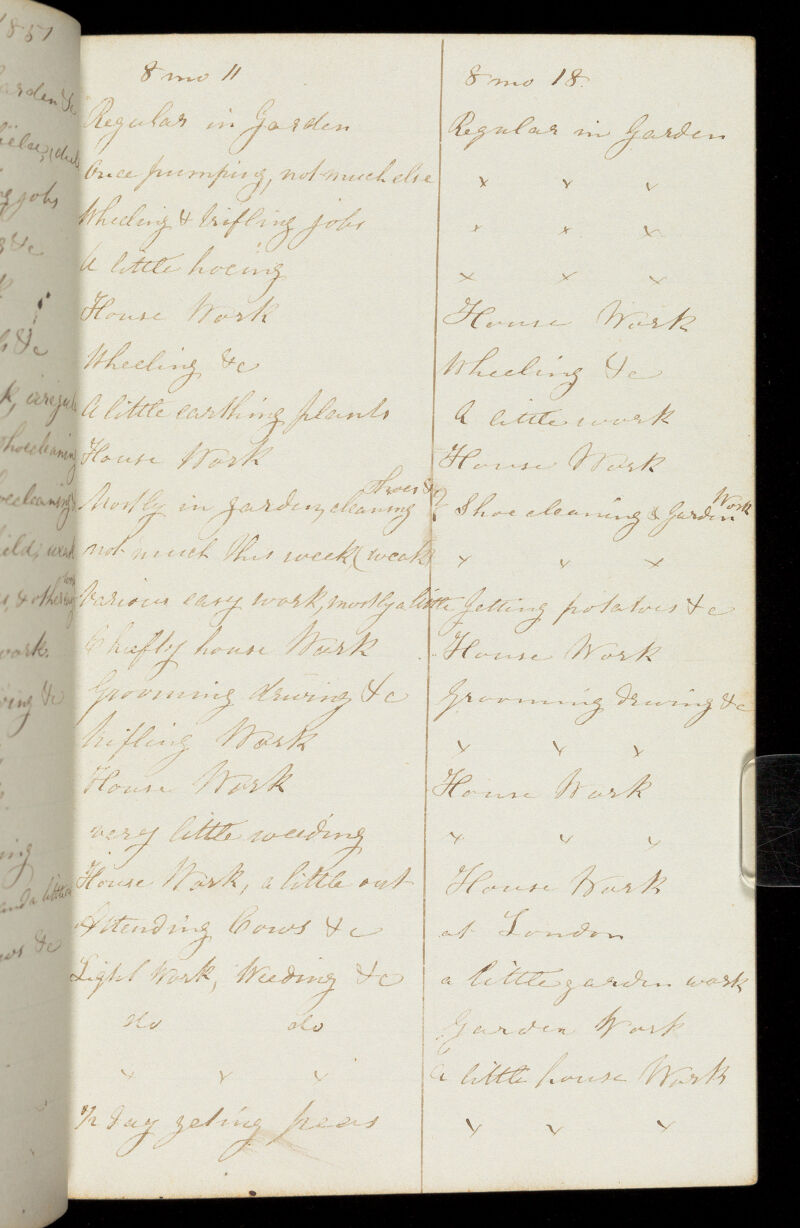 1851
8 mo 11
Regular in Garden
Once pumping, not much else
Wheeling & trifling jobs
A little hoeing
House Work
Wheeling &c
A little earthing plants
House Work
Mostly in garden, cleaning Shoes &c
not much this week (weak
Various easy work, mostly a little
Chiefly house Work
Grooming driving &c
trifling Work
House Work
very little weeding
House Work, a little out
Attending Cows &c
Light Work, Weeding &c
do do
" " "
½ day geting peas
8 mo 18
Regular in Garden
" " "
" " "
" " "
House Work
Wheeling &c
A little work
House Work
Shoe cleaning & Garden Work
" " "
Getting potatoes &c
House Work
Grooming driving &c
" " "
House Work
" " "
House Work
at London
a little garden work
Garden Work
a little house Work
" " "